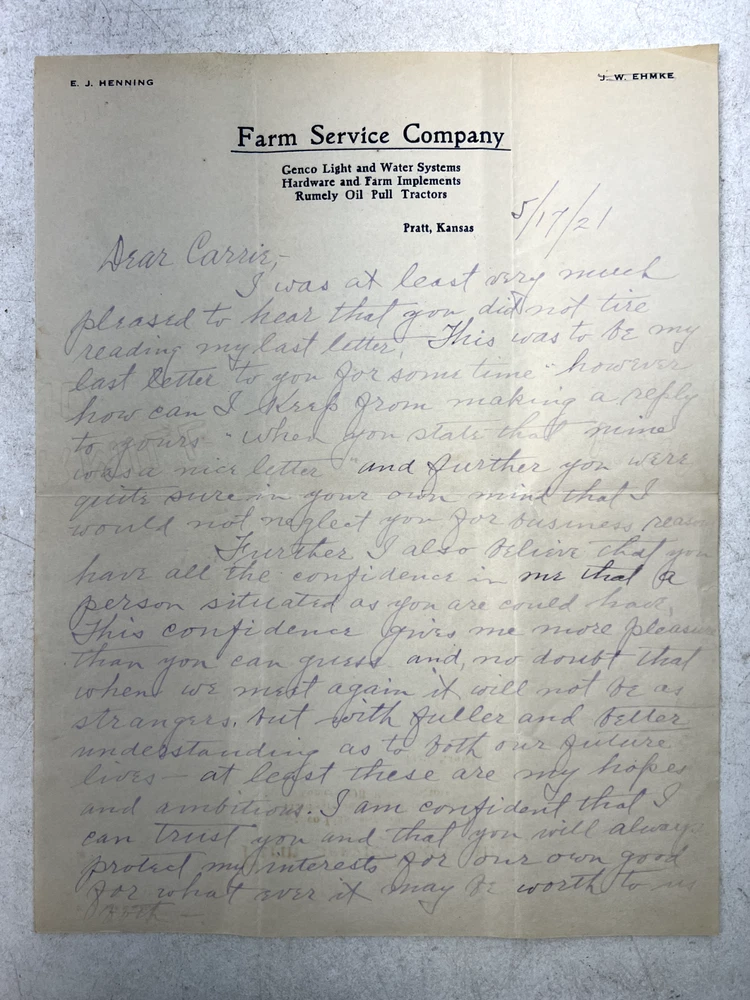 E. J. HENNING
J. W. EHMKE
Farm Service Company
Genco Light and Water Systems
Hardware and Farm Implements
Rumely Oil Pull Tractors
Pratt, Kansas
5/17/21
Dear Carrie,-
I was at least very much
pleased to hear that you did not tire
reading my last letter. This was to be my
last letter to you for some time - however
how can I keep from making a reply
to yours "when you state that mine
was a nice letter" and further you were
quite sure in your own mind that I
would not neglect you for business reason
Further I also believe that you
have all the confidence in me that a
person situated as you are could have.
This confidence gives me more pleasure
than you can guess and, no doubt that
when we meet again it will not be as
strangers, but with fuller and better
understanding as to both our future
lives - at least these are my hopes
and ambitions. I am confident that I
can trust you and that you will always
protect my interests for our own good
for what ever it may be worth to us